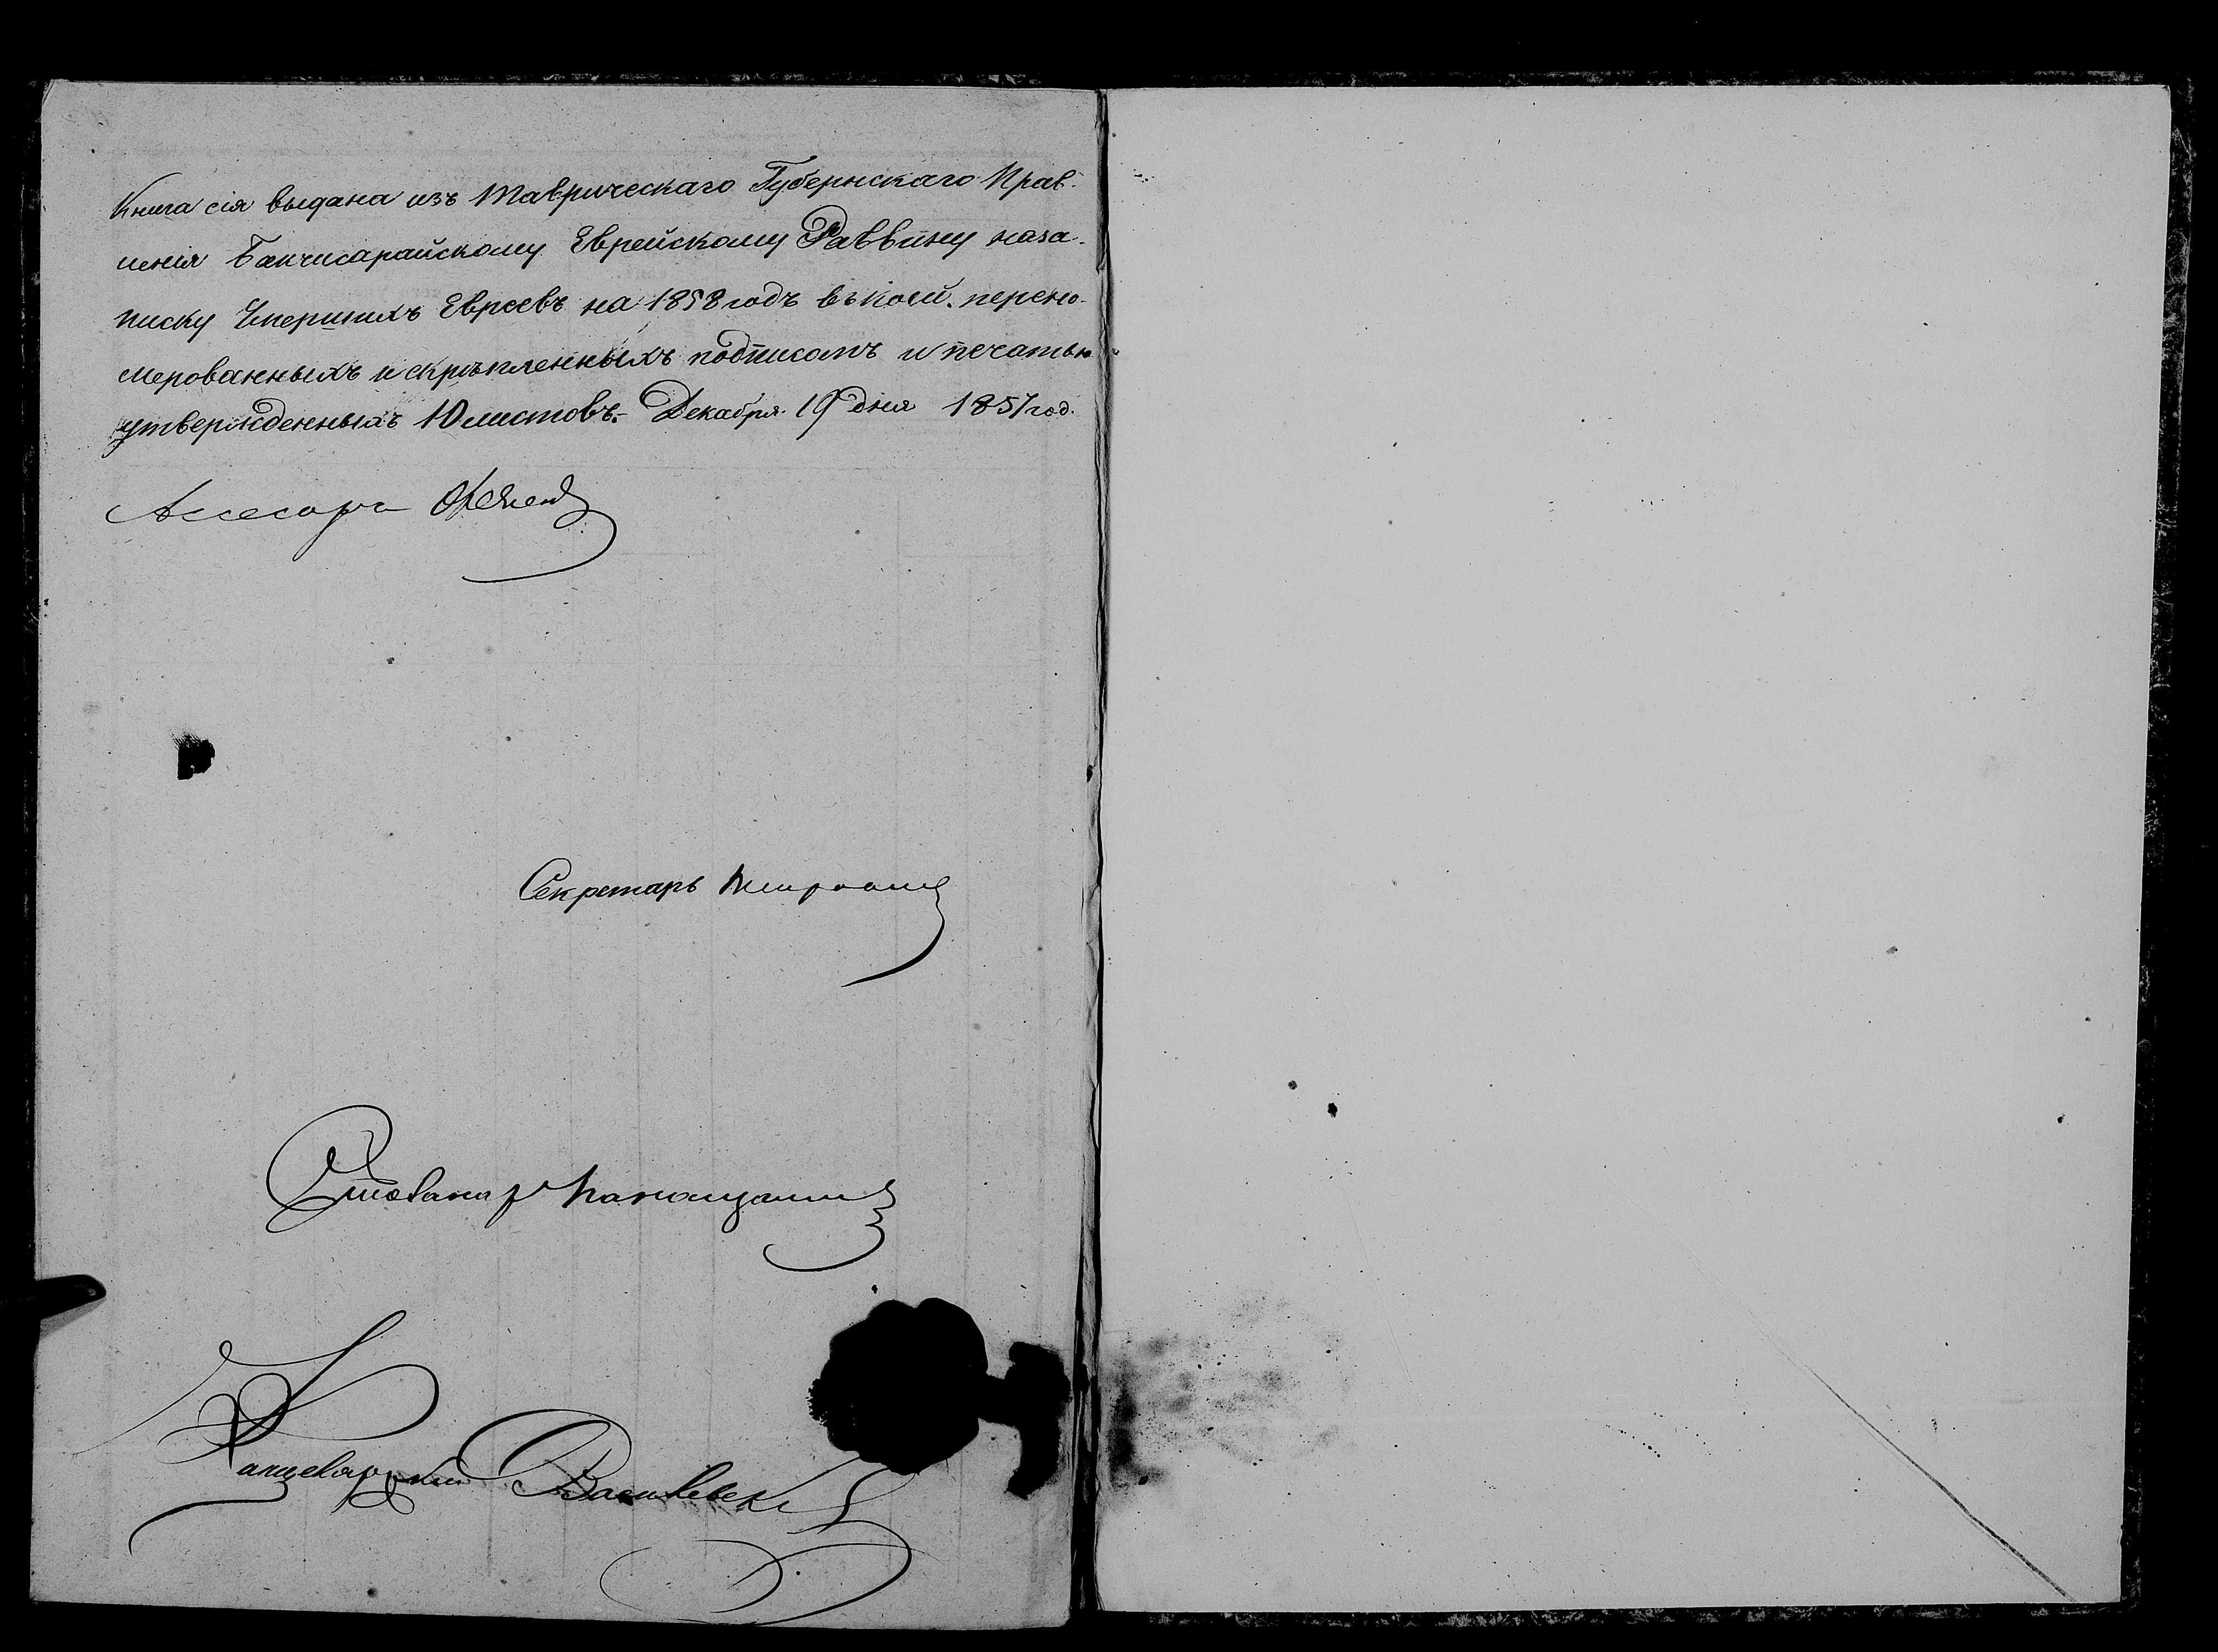 Книга сія выдана изъ Таврическаго Губернскаго Прав-
ленія Бакчисарайскому Еврейскому Раввину наза-
писку Умершихъ Евреевъ на 1858 годъ въ коей перено-
мерованныхъ и скрѣпленныхъ подписомъ и печатью
утвержденныхъ 10 листовъ. Декабря 19 дня 1857 год.
Ассесоръ
Секретарь
Столоначал
Канцелярскій Василевскі